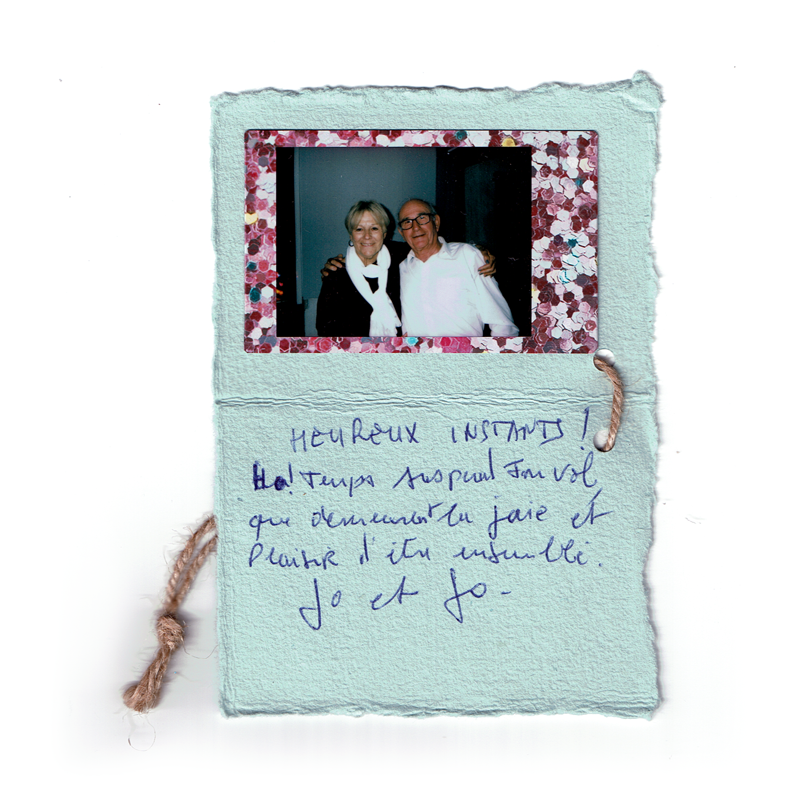 HEUREUX INSTANTS !
Ho! Temps suspend ton vol,
que demeurent la joie et
Plaisir d'être ensemble.
Jo et Jo.